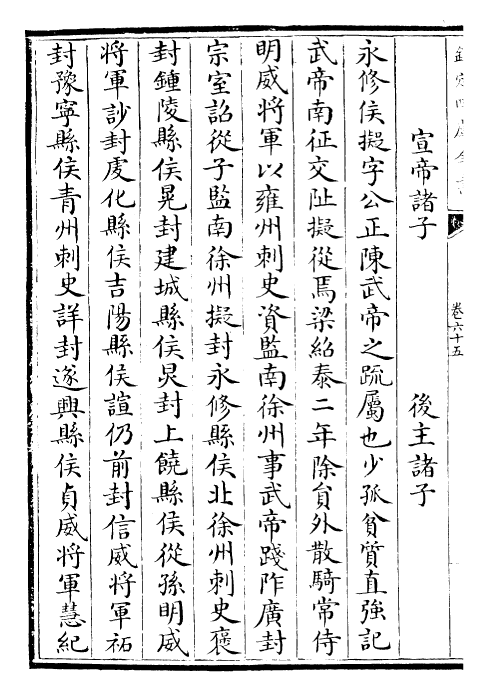 欽定四庫全書
卷六十五
宣帝諸子 後主諸子
永修侯擬字公正陳武帝之疏屬也少孤貧質直強記
武帝南征交阯擬從焉梁紹泰二年除貟外散騎常侍
明威將軍以雍州刺史資監南徐州事武帝踐阼廣封
宗室詔從子監南徐州擬封永修縣侯北徐州刺史褒
封鍾陵縣侯晃封建城縣侯炅封上饒縣侯從孫明威
將軍訬封䖍化縣侯吉陽縣侯諠仍前封信威將軍祏
封豫寧縣侯青州刺史詳封遂興縣侯貞威將軍慧紀